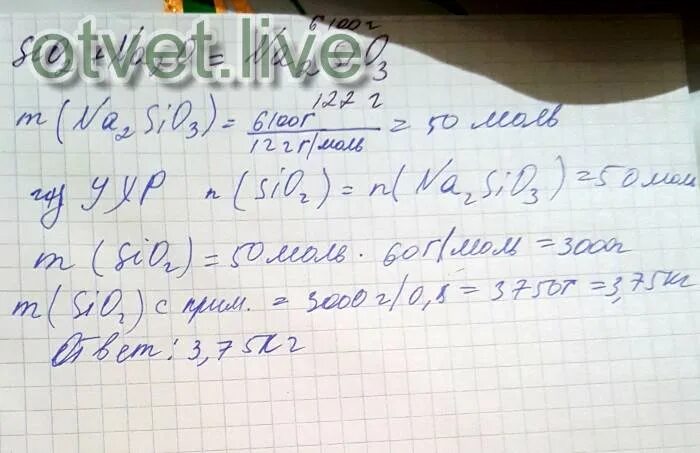 6100г
SiO2 + Na2O = Na2SiO3
otvet.live
122 г
m (Na2SiO3) = 6100г / 122г/моль = 50 моль
из УХР n (SiO2) = n(Na2SiO3) = 50 мол
m (SiO2) = 50 моль · 60г/моль = 3000г
m (SiO2) с прим. = 3000 г/0,8 = 3750г = 3,75кг
Ответ: 3,75кг